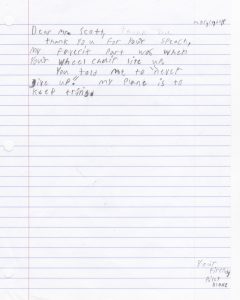 Dear Mr. Scott,
thank you for your speach,
My faverit Part was when
Your wheel chair lite up.
You told me to never
give up. my Plane is to
keep tring
Your
friend